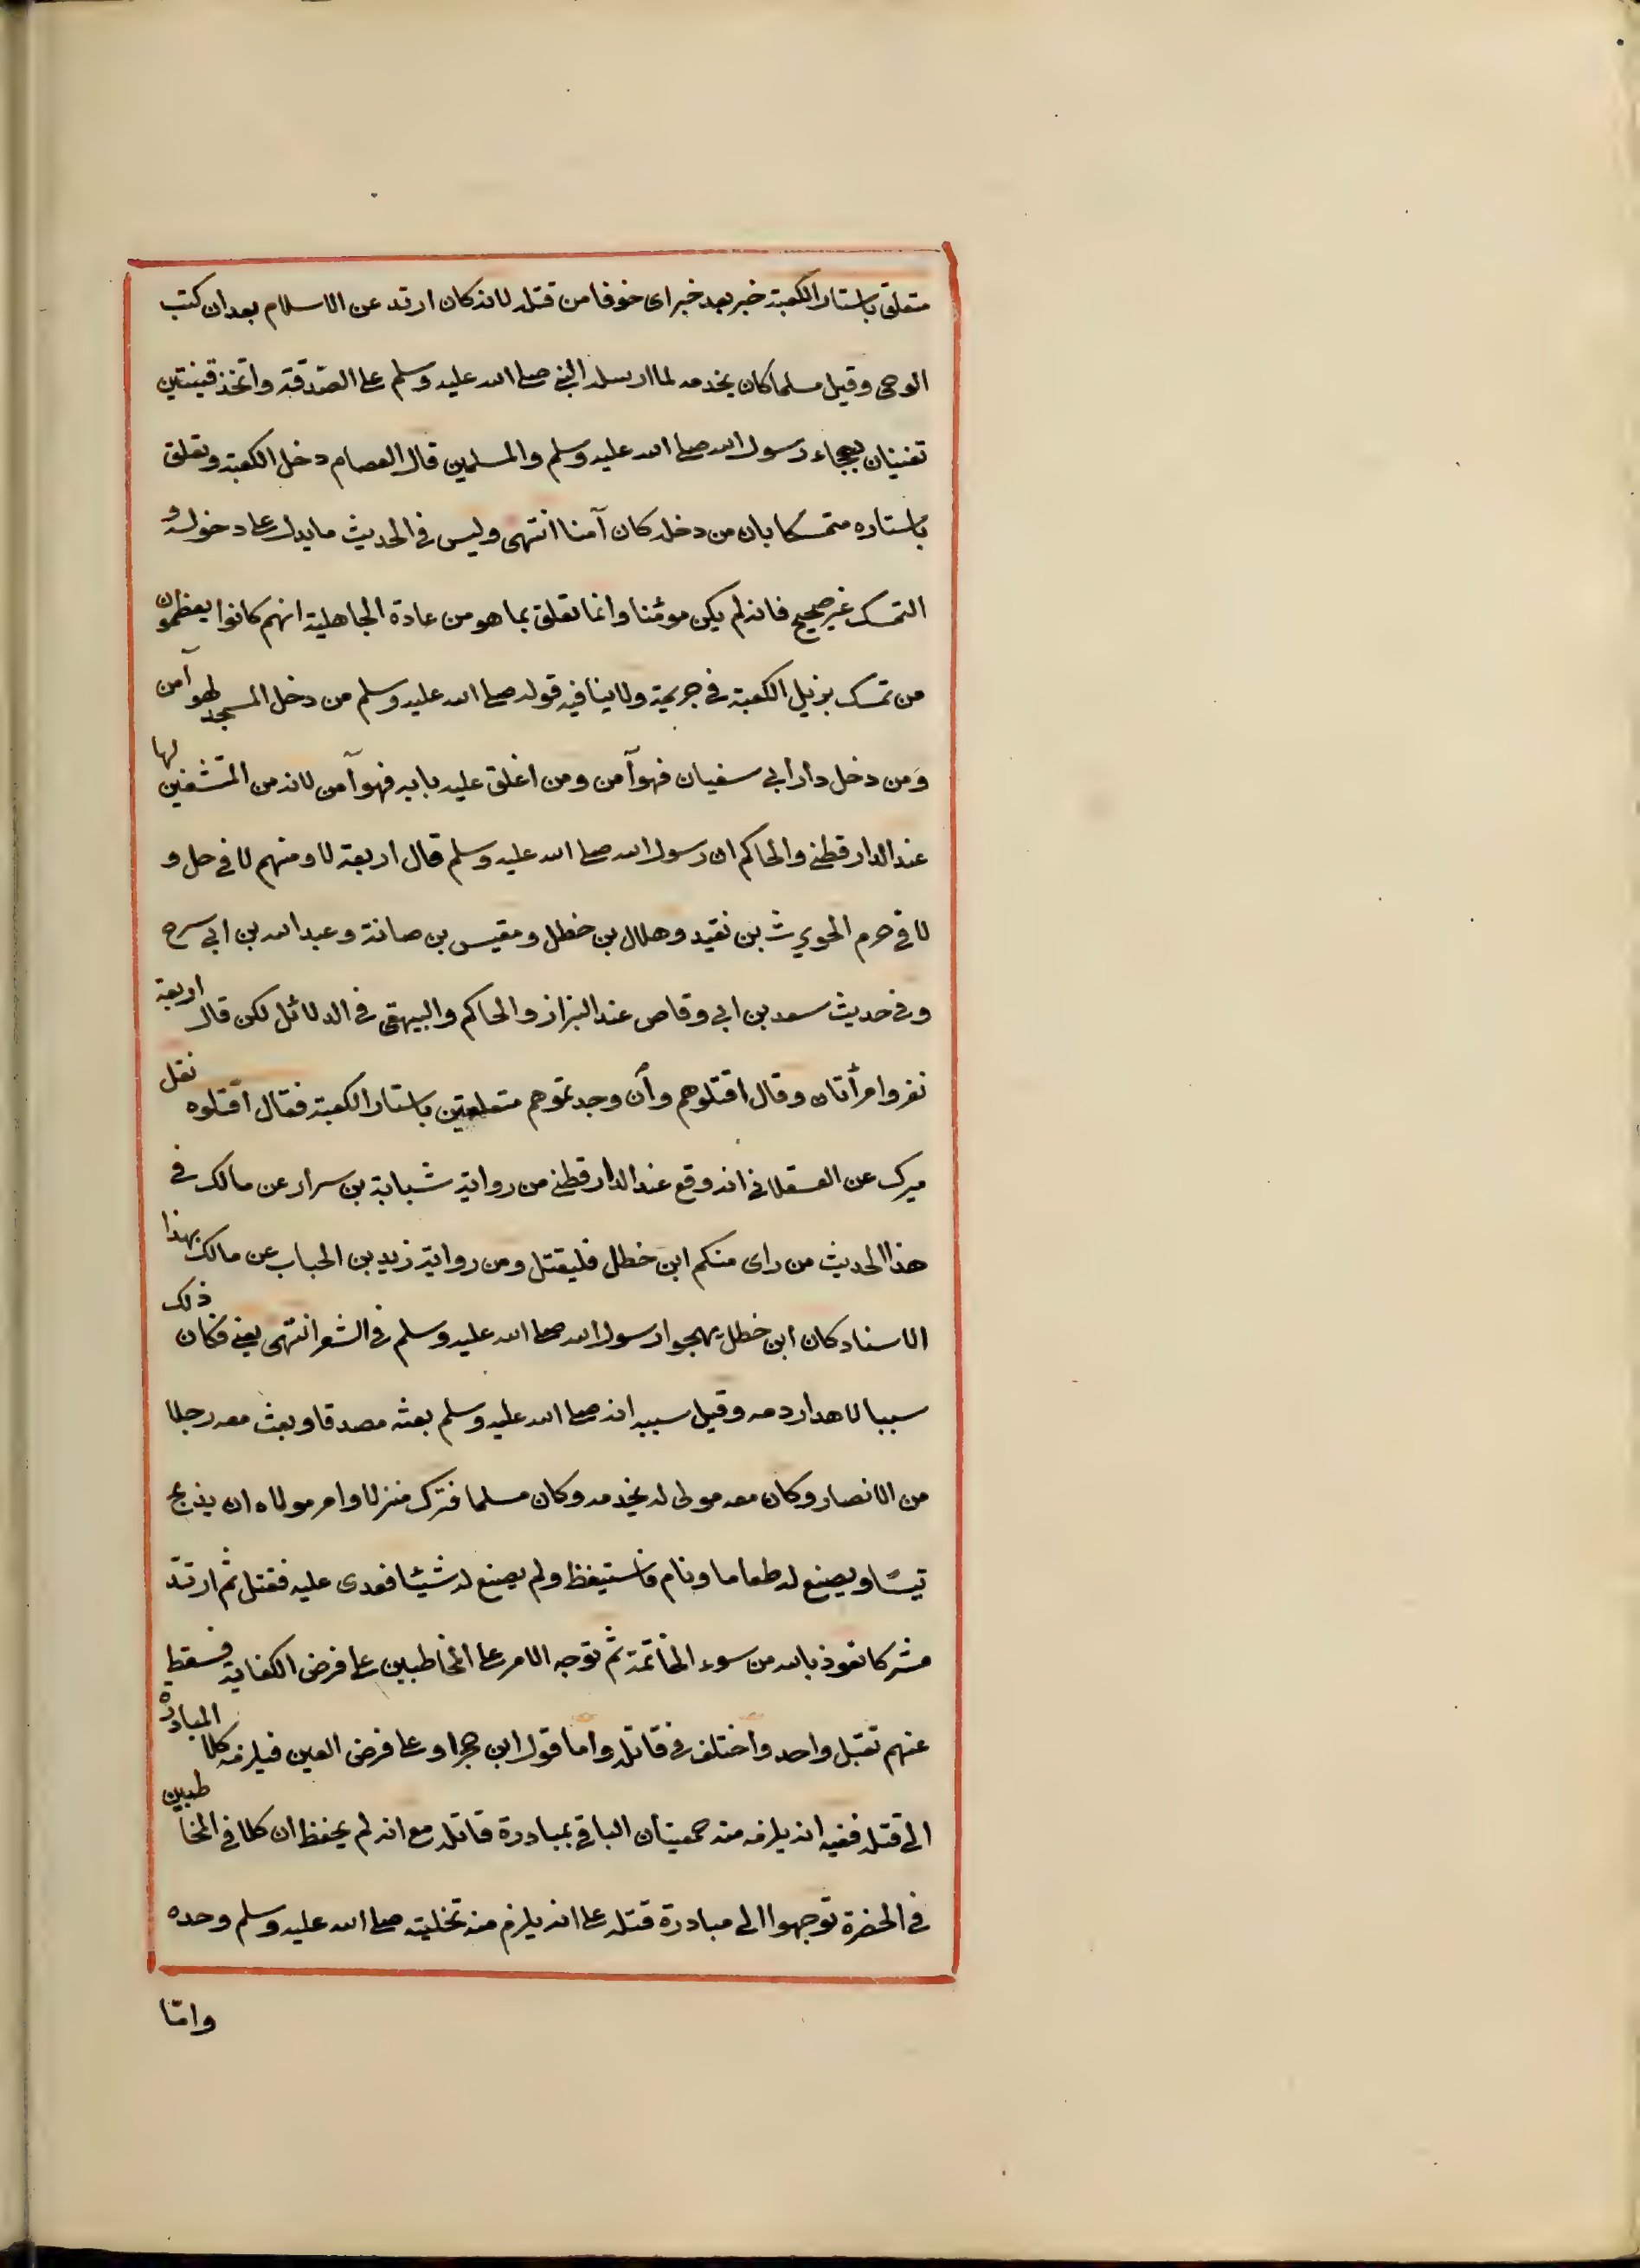 متعلق باستار الكعبة خبر بعد خبر اى خوفا من قتله لانه كان ارتد عن الاسلام بعد ان كتب
الوحى وقيل مسلما كان يخدمه لما ارسله النبي صلى الله عليه وسلم على الصدقة واتخذ قينتين
تغنيان بهجاء رسول الله صلى الله عليه وسلم والمسلمين قال العصام دخل الكعبة وتعلق
باستاره متمسكا بان من دخله كان آمنا انتهى وليس في الحديث ما يدل على دخوله و
التمسك غير صحيح فانه لم يكن مؤمنا وانما تعلق بما هو من عادة الجاهلية انهم كانوا يعظمون
من تمسك بذيل الكعبة في جريمة ولا ينافيه قوله صلى الله عليه وسلم من دخل المسجد فهو آمن
ومن دخل دار ابي سفيان فهو آمن ومن اغلق عليه بابه فهو آمن لانه من المستثنين لما
عند الدارقطني والحاكم ان رسول الله صلى الله عليه وسلم قال اربعة لا ومنهم لا في حل و
لا في حرم الحويرث بن نقيد وهلال بن خطل ومقيس بن صبانة وعبد الله بن ابي سرح
وفي حديث سعد بن ابي وقاص عند البزاز والحاكم والبيهقي في الدلائل لكن قال اربعة
نفر وامرأتان وقال اقتلوهم وان وجدتموهم متعلقين باستار الكعبة فقال اقتلوه نقل
ميرك عن العسقلاني انه وقع عند الدارقطني من رواية شبابة بن سرار عن مالك في
هذا الحديث من راى منكم ابن خطل فليقتل ومن رواية زيد بن الحباب عن مالك بهذا
الاسناد كان ابن خطل يهجوا رسول الله صلى الله عليه وسلم في الشعر انتهى يعني فكان ذلك
سببا لاهدار دمه وقيل سببه انه صلى الله عليه وسلم بعثه مصدقا وبعث معه رجلا
من الانصار وكان معه مولى له يخدمه وكان مسلما فترك منزلا وامر مولاه ان يذبح
تيسا ويصنع له طعاما ونام فاستيقظ ولم يصنع له شيئا فعدى عليه فقتل ثم ارتد
مشركا نعوذ بالله من سوء الخاتمة ثم توجه الامر على المخاطبين على فرض الكفاية فسقط
عنهم بقتل واحد واختلف في قاتله واما قول ابن حجر او على فرض العين فيلزم كلا المبادرة
الى قتله ففيه انه يلزمه منه عصيان الباقي بمبادرة قاتله مع انه لم يحفظ ان كلا في المخاطبين
في الحضرة توجهوا الى مبادرة قتله على انه يلزم منه تخليته صلى الله عليه وسلم وحده
وامّا